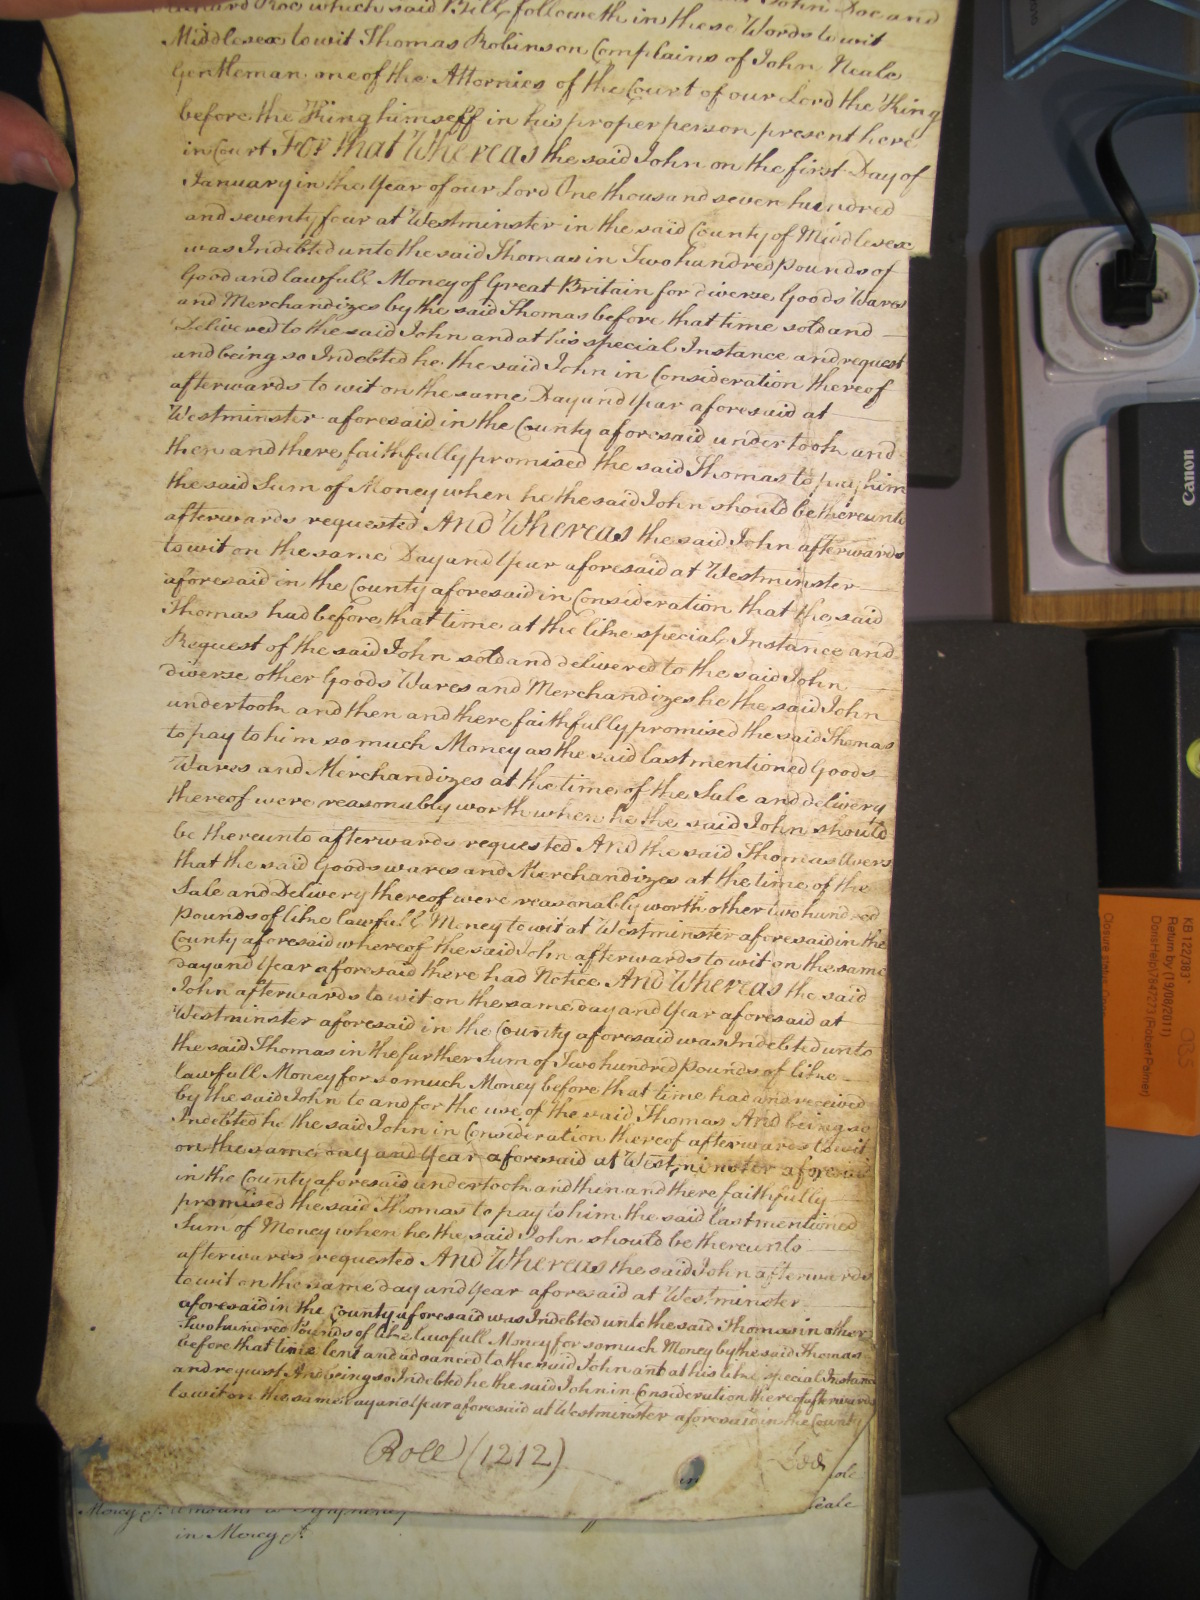 Richard Roe which said Bill followeth in these Words to wit John Doe and
Middlesex to wit Thomas Robinson Complains of John Neale
Gentleman one of the Attornies of the Court of our Lord the King
before the King himself in his proper person present here
in Court For that Whereas the said John on the first Day of
January in the Year of our Lord One thousand seven hundred
and seventy four at Westminster in the said County of Middlesex
was Indebted unto the said Thomas in Two hundred pounds of
Good and lawfull Money of Great Britain for diverse Goods Wares
and Merchandizes by the said Thomas before that time sold and
Delivered to the said John and at his special Instance and request
and being so Indebted he the said John in Consideration thereof
afterwards to wit on the same Day and Year aforesaid at
Westminster aforesaid in the County aforesaid undertook and
then and there faithfully promised the said Thomas to pay him
the said Sum of Money when he the said John should be thereunto
afterwards requested And Whereas the said John afterwards
to wit on the same Day and Year aforesaid at Westminster
aforesaid in the County aforesaid in Consideration that the said
Thomas had before that time at the like special Instance and
Request of the said John sold and delivered to the said John
diverse other Goods Wares and Merchandizes he the said John
undertook and then and there faithfully promised the said Thomas
to pay to him so much Money as the said last mentioned Goods
Wares and Merchandizes at the time of the Sale and delivery
thereof were reasonably worth when he the said John should
be thereunto afterwards requested And the said Thomas Avers
that the said Goods wares and Merchandizes at the time of the
Sale and Delivery thereof were reasonably worth other two hundred
pounds of like lawfull Money to wit at Westminster aforesaid in the
County aforesaid whereof the said John afterwards to wit on the same
day and Year aforesaid there had Notice And Whereas the said
John afterwards to wit on the same day and Year aforesaid at
Westminster aforesaid in the County aforesaid was Indebted unto
the said Thomas in the further Sum of Two hundred pounds of like
lawfull Money for so much Money before that time had and received
by the said John to and for the use of the said Thomas And being so
Indebted he the said John in Consideration thereof afterwards to wit
on the same day and Year aforesaid at Westminster aforesaid
in the County aforesaid undertook and then and there faithfully
promised the said Thomas to pay to him the said last mentioned
Sum of Money when he the said John should be thereunto
afterwards requested And Whereas the said John afterwards
to wit on the same day and Year aforesaid at Westminster
aforesaid in the County aforesaid was Indebted unto the said Thomas in other
Two hundred Pounds of like lawfull Money for so much Money by the said Thomas
before that time lent and advanced to the said John and at his like special Instance
and request And being so Indebted he the said John in Consideration thereof afterwards
to wit on the same day and Year aforesaid at Westminster aforesaid in the County
Roll (1212)
in Mercy &c.
Canon
KB 122/383
Return by (19/08/2011)